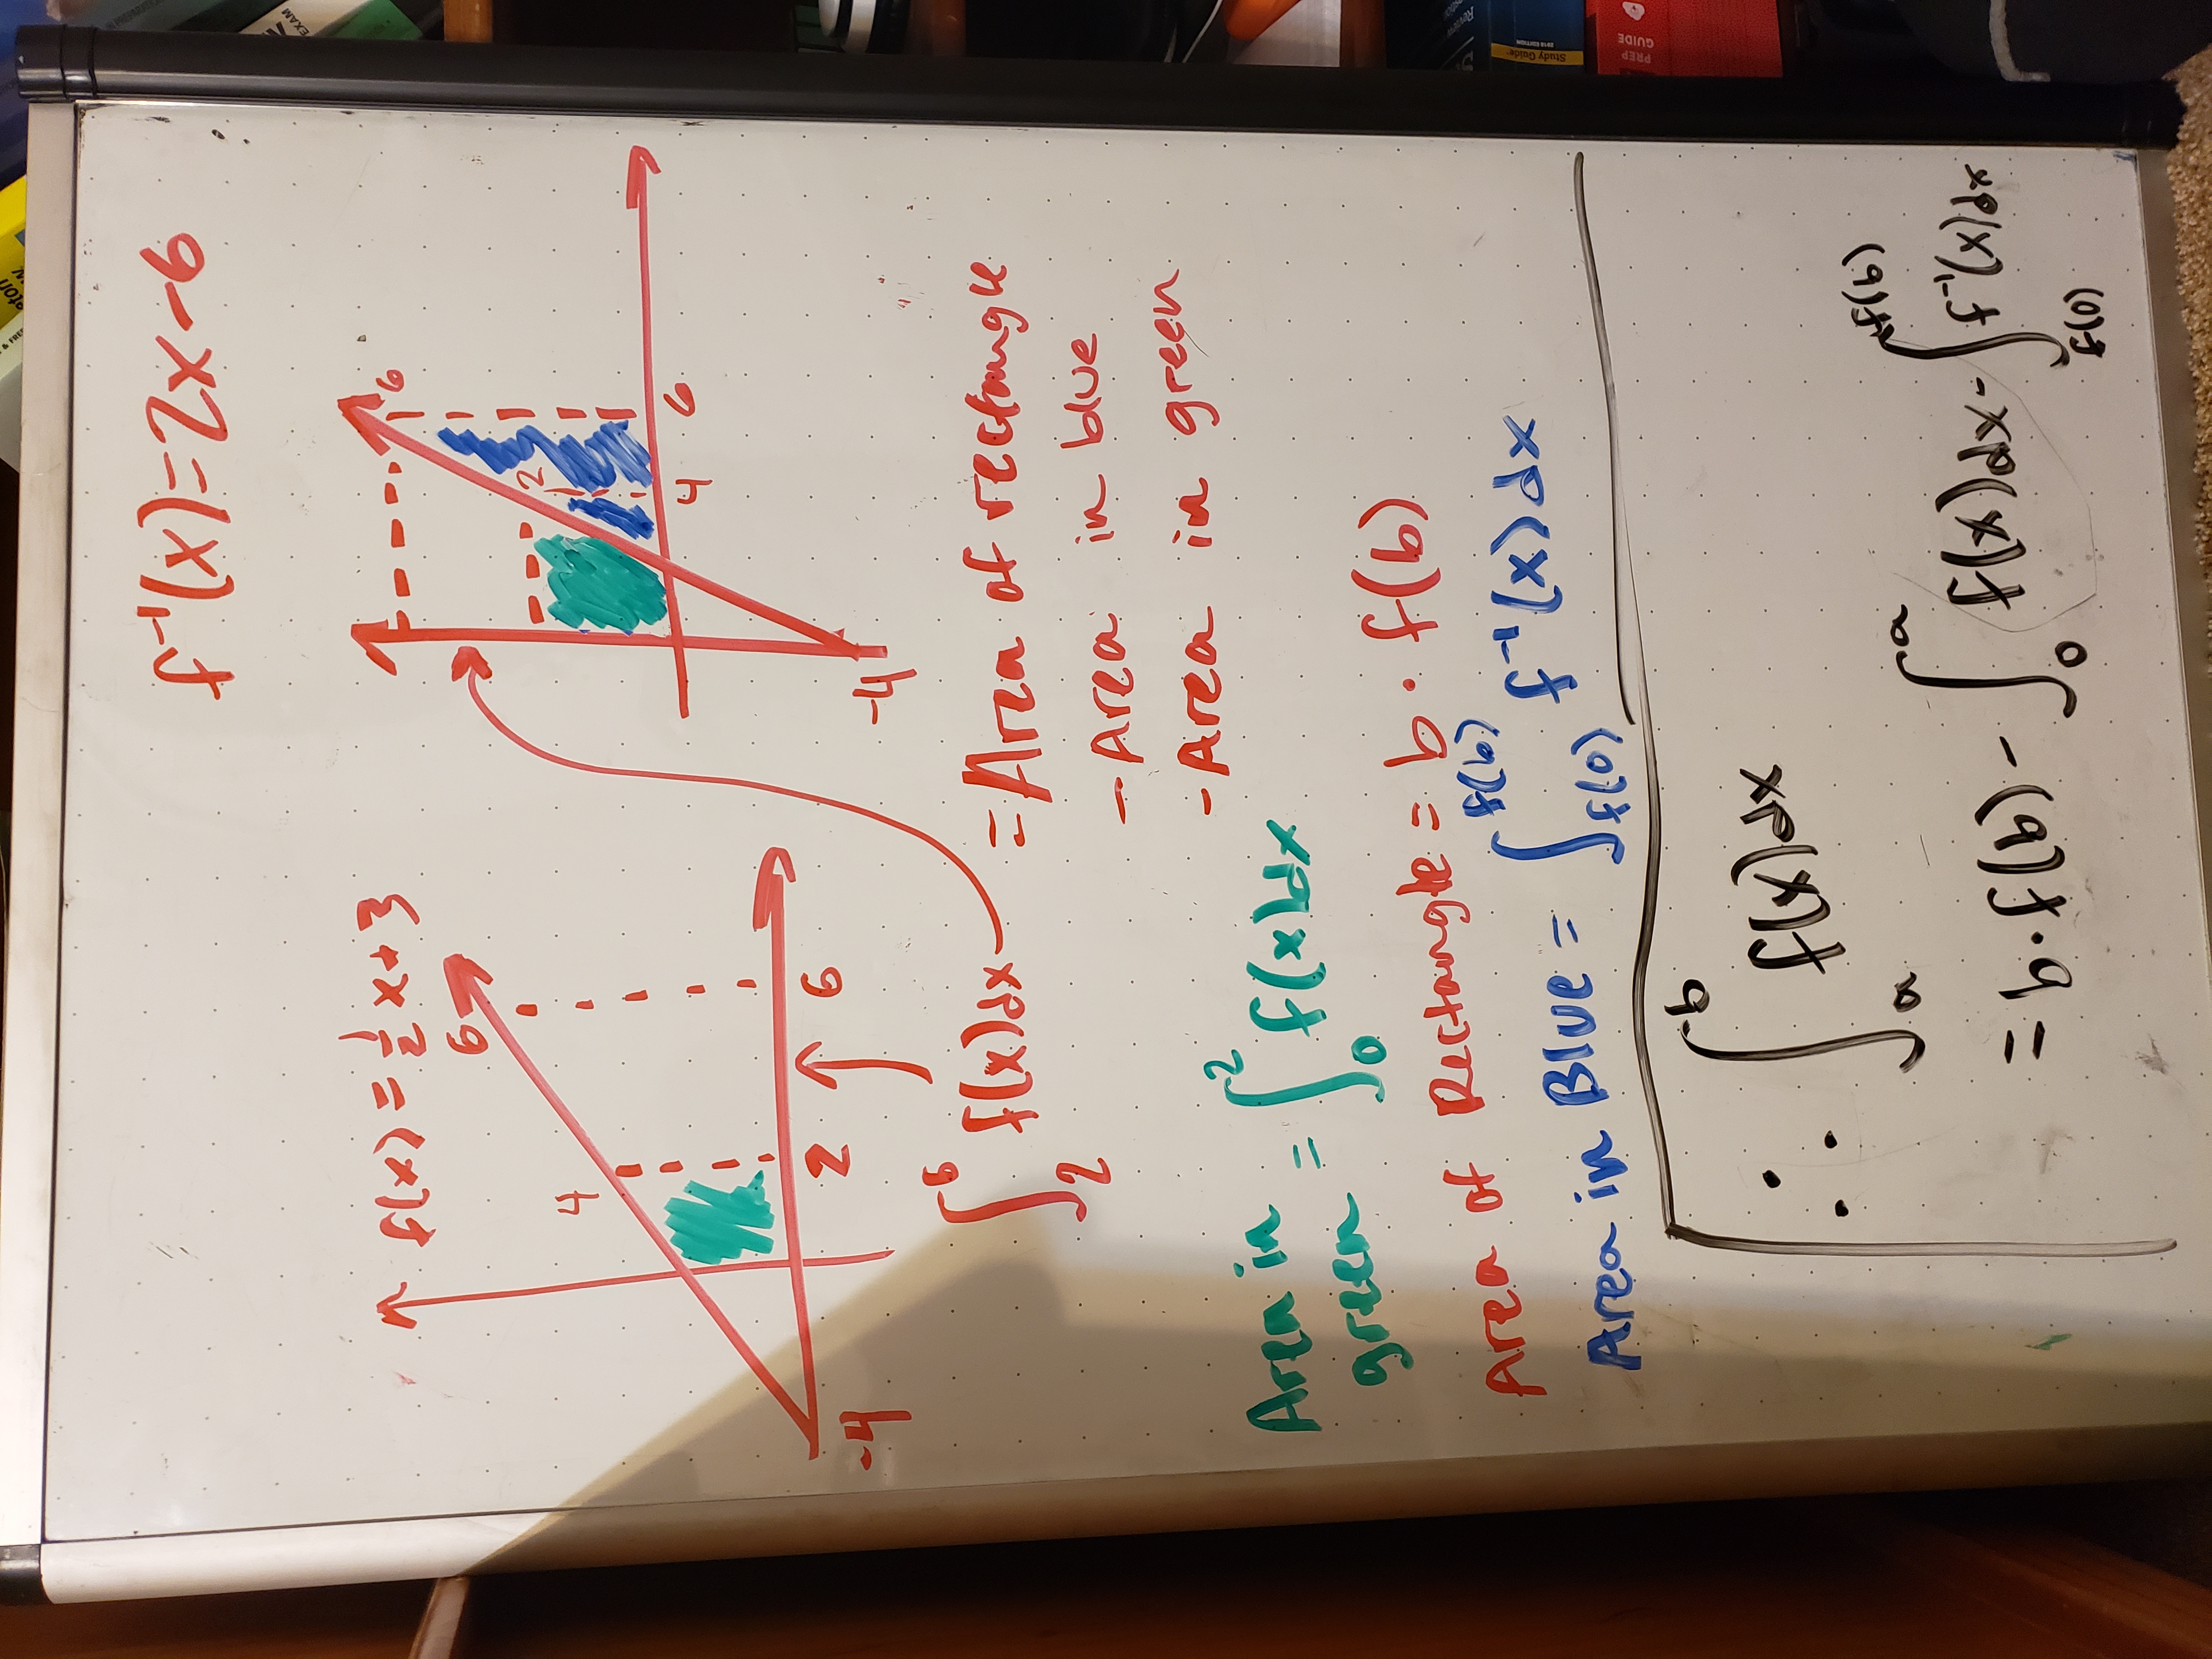 f⁻¹(x)=2x-6
f(x) = 1/2 x+3
6
4
2
6
-4
6
2
4
6
-4
∫₂⁶ f(x)dx
= Area of rectangle
- Area in blue
- Area in green
Area in
green = ∫₀² f(x)dx
Area of Rectangle = b · f(b)
Area in Blue = ∫_{f(0)}^{f(b)} f⁻¹(x)dx
∴ ∫ₐᵇ f(x)dx
= b·f(b) - ∫₀ᵃ f(x)dx - ∫_{f(0)}^{f(b)} f⁻¹(x)dx
eton
EXAM
Study Guide
PREP
GUIDE